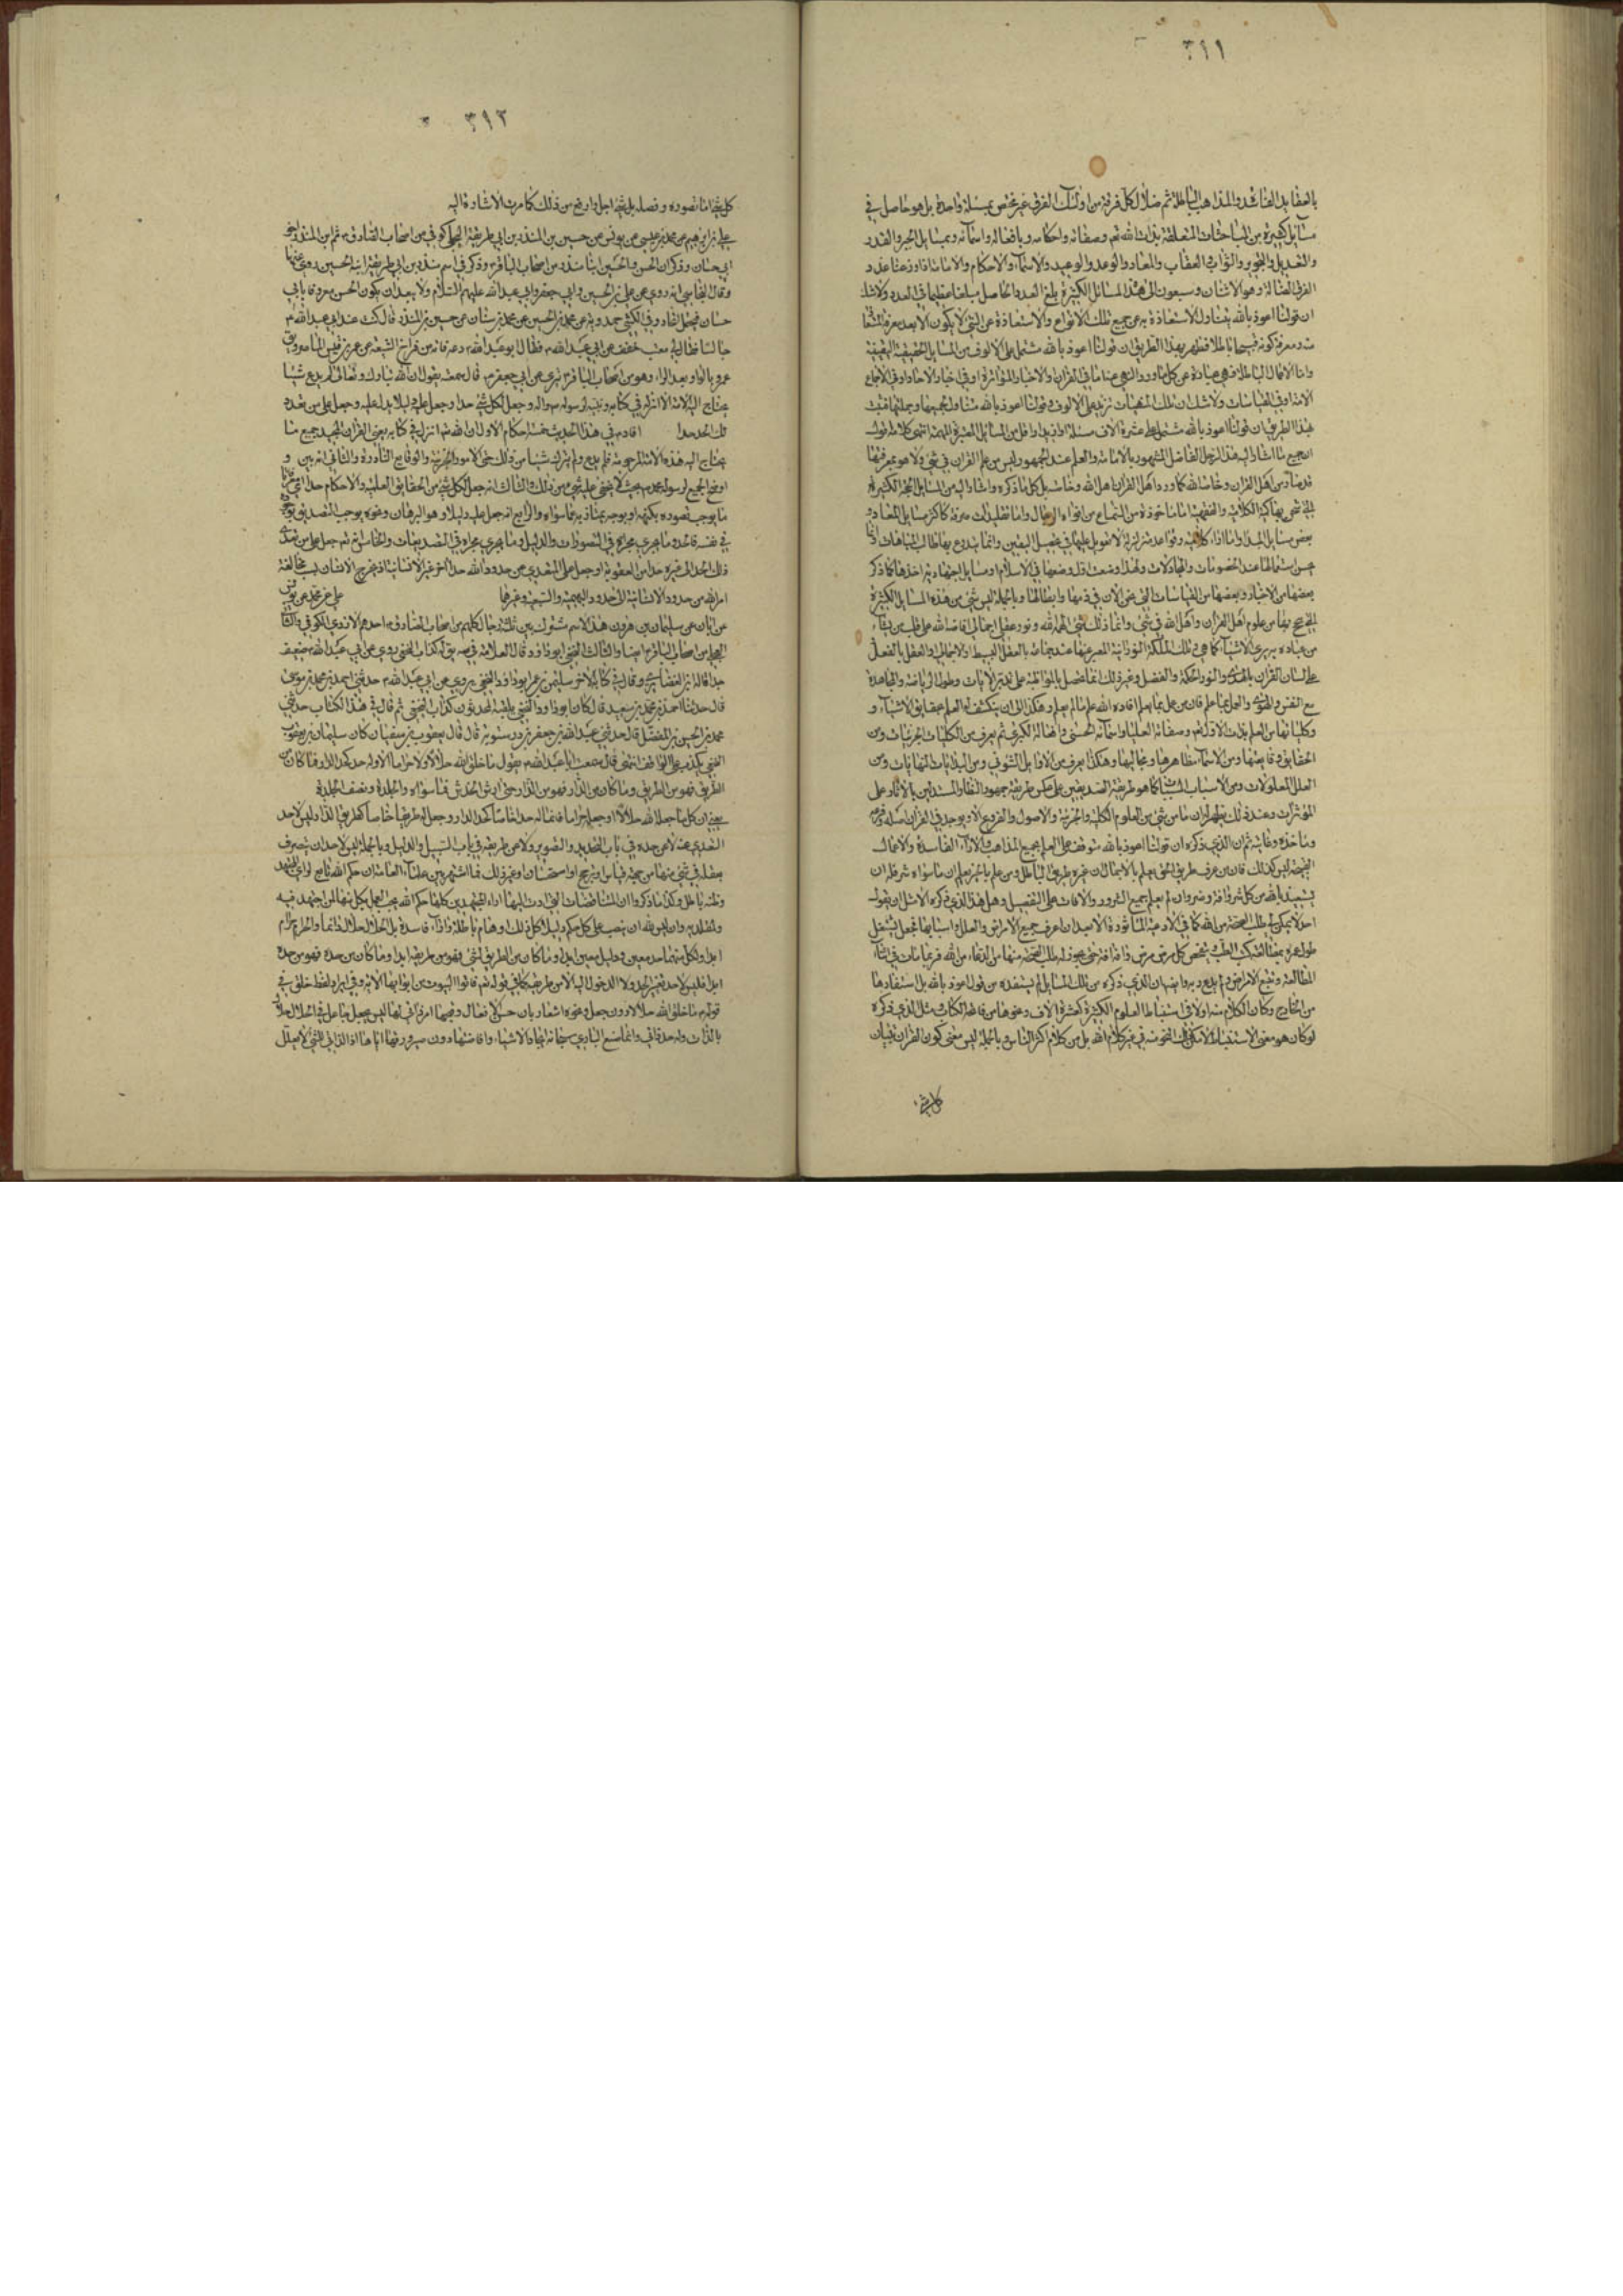 ٣٩١
بالعقايد الفاسدة والمذاهب الباطلة ثم ضلال كل فرقة من اولئك الفرق غير مختص بمسئلة واحدة بل هو حاصل في
مسايل كثيرة من المباحثات المتعلقة بذات الله تعالى وصفاته واحكامه وبافعاله واسمائه وبمسايل الجبر والقدر
والتعديل والتجوير والثواب والعقاب والمعاد والوعد والوعيد والاسماء والاحكام والامامة فاذا وزعنا عدد
الفرق الضالة وهو الاثنان وسبعون الى هذه المسائل الكثيرة بلغ العدد الحاصل مبلغا عظيما في العدد ولا شك
ان قولنا اعوذ بالله يتناول الاستعاذة به عن جميع تلك الانواع والاستعاذة عن الشئ لا يكون الا بعد معرفة
ومعرفة كونه قبيحا باطلا فظهر بهذا الطريق ان قولنا اعوذ بالله مشتمل على الالوف من المسايل الحقيقية اليقينية
واما الاعمال الباطلة فهي عبارة عن كل ما ورد النهي عنه اما في القران والاخبار المتواترة او في اخبار الاحاد او في الاجماع
الامة او في القياسات ولا شك ان تلك المنهيات تزيد على الالوف وقولنا اعوذ بالله متناول لجميعها وجملتها فثبت
بهذا الطريق ان قولنا اعوذ بالله مشتمل على عشرة الاف مسئلة او ازيد او اقل من المسايل المعتبرة المهمة انتهى كلامه
جميع ما اشار اليه هذا الرجل الفاضل المشهور بالامامة والعلم عند الجمهور ليس من علم القران في شئ ولا هو بمعرفتها
من اهل القران وخاصة الله كما ورد اهل القران اهل الله وخاصته بل كل ما ذكره واشار اليه من المسايل الجمة الكثيرة
الكلامية والفقهية اما ماخوذة من السماع من افواه الرجال واما تقليدات صرفة كاكثر مسايل المعاد و
بعض مسايل المبدا واما
بعضها من الاخبار وبعضها من القياسات التي نحن الان في ذمها وابطالها وبالجملة ليس شئ من هذه المسايل الكثيرة
من علوم اهل القران واهل الله في شئ وانما ذلك شئ الهمه الله ونور عقلي اجمالي افاضه الله على قلب من يشاء
من عباده به يرى الاشياء كما هي تلك الملكة النورانية المعبر عنها عند بالعقل البسيط والاجمالي والعقل بالفعل
على لسان القران والنور والحكمة والفضل وغير ذلك انما تحصل بالمواظبة على تدبر الايات وطول الرياضة والمجاهدة
مع النفس والهوى والعمل بما علم فان من عمل بما علم افاده الله علم ما لم يعلم وهكذا الى ان ينكشف له العلم بحقايق الاشياء و
وكلياتها من العلم بذات الاول تعالى وصفاته العليا واسمائه الحسنى وافعاله الكبرى ثم يعرف من الكليات الجزئيات ومن
الحقايق ومن الاسماء مظاهرها ومجاليها وهكذا يعرف من ومن البدايات النهايات ومن
العلل المعلولات ومن الاسباب المسببات كما هو طريقة الصديقين على عكس طريقة جمهور النظار المستدلين بالاثار على
المؤثرات وعند ذلك يظهر له ان ما من شئ من العلوم الكلية والجزئية والاصول والفروع الا ويوجد في القران اصله وفرعه
وماخذه وغايته ثم ان الذي ذكره ان قولنا اعوذ بالله متوقف على العلم بجميع المذاهب والاراء الفاسدة والاعمال
القبيحة ليس كذلك فان من عرف طريق الحق يعلم بالاجمال ان غيره طريق الباطل ومن علم يعلم ان ما سواه شر فله ان
يستعيذ بالله من كل شر وافة وضر وان لم يعلم جميع الشرور والافات على التفصيل وهل هذا الذي ذكره الا مثل ان يقول
احد لا يمكن طلب الصحة من الله كما في الادعية الماثورة الا بعد ان اعرف جميع الامراض والعلل واسبابها فجعل يشتغل
طول عمره بمطالعة كتب الطب ويتفحص كل مرض مرض وافة افة حتى يجوز له طلب الصحة منها من الدعاء من الله فربما مات في اثناء
المطالعة وتتبع الامراض ولم يدع به وايضا ان الذي ذكره من تلك المسايل لم يستفده من قولنا اعوذ بالله بل استفادها
من الخارج وكان الكلام منه اولا في استنباط العلوم الكثيرة كعشرة الاف ونحوها من فاتحة الكتاب مثل الذي ذكره
لو كان هو معنى الاستنباط لامكن ذلك لنحو منه في غير كلام الله بل من كلام اكثر الناس وبالجملة ليس معنى كون القران تبيان
كل شئ
٣٩٢
كل شئ اما تصوره وفصله بل شئ اجل وارفع من ذلك كما مرت الاشارة اليه
علي بن ابراهيم عن محمد بن عيسى عن يونس عن حسين بن المنذر بن ابي طريفة البجلي كوفي من اصحاب الصادق ع ابن المنذر اخو
ابي حسان وذكر ان الحسن والحسين ابنا منذر من اصحاب الباقر ع وذكر في اسم منذر بن ابي طريفة ابنه الحسين روى عنهما
وقال النجاشي انه روى عن علي بن الحسين وابي جعفر وابي عبد الله عليهم السلام ولا يبعد ان يكون الحسن معروفا بابي
حسان وفي الكشي حمدويه عن محمد بن الحسين عن محمد بن سنان عن حسين بن المنذر قال كنت عند ابي عبد الله ع
جالسا فقال لي معتب خفف عن ابي عبد الله ع فقال ابو عبد الله ع دعه فانه من فراخ الشيعة عن عمر بن قيس الماصر
عمرو بالواو بعد الراء وهو من اصحاب الباقر ع بتري عن ابي جعفر ع قال سمعته يقول ان الله تبارك وتعالى لم يدع شيئا
يحتاج اليه الامة الا انزله في كتابه وبينه لرسوله ص واله وجعل لكل شئ حدا وجعل عليه دليلا يدل عليه وجعل على من تعدى
ذلك الحد حدا افاد ع في هذا الحديث خمسة احكام الاول ان الله تعالى انزل في كتابه يعني القران المجيد جميع ما
يحتاج اليه هذه الامة المرحومة فلم يدع ولم يترك شيئا من ذلك حتى الامور الجزئية والوقايع النادرة والثاني انه بين و
اوضح الجميع لرسوله محمد ص بحيث لا يخفى عليه شئ من ذلك والثالث انه جعل لكل شئ من الحقايق العلمية والاحكام حدا
ما يوجب تصوره بكنهه او بوجه يمتاز به عما سواه والرابع انه جعل عليه دليلا وهو البرهان ونحوه يوجب التصديق
في نفسه فالحد وما يجري مجراه في التصورات والدليل وما يجري مجراه في التصديقات والخامس انه تعالى جعل على من تعدى
ذلك الحد الى غيره حدا من العقوبة او جعل على المتعدي عن حدود الله حدا اخر غير الانسانية اذ يخرج الانسان بسبب مخالفة
امر الله من حدود الانسانية الى حدود البهيمية والسبعية وغيرها علي عن محمد عن يونس
عن ابان عن سليمان بن هرون هذا الاسم مشترك بين ثلث رجال كلهم من اصحاب الصادق ع احدهم الازدي الكوفي والثاني
العجلي من اصحاب الباقر ع ايضا والثالث النخعي ابو داود وقال العلامة في صه يق له كذاب النخع روى عن ابي عبد الله ع ضعيف
جدا قاله ابن الغضايري وقال في كتابه الاخر سليمان بن عمر ابو داود النخعي يروي عن ابي عبد الله ع حدثني احمد بن محمد بن موسى
قال حدثنا احمد بن محمد بن سعيد قال كان ابو داود النخعي يلقبه المحدثون كذاب النخع ثم قال في هذا الكتاب حدثني
محمد بن الحسين بن المفضل قال حدثني عبد الله بن جعفر بن درستويه قال قال يعقوب بن سفيان كان سليمان بن يعقوب
النخعي يكذب على الوقف انتهى قال سمعت ابا عبد الله ع يقول ما خلق الله حلالا ولا حراما الا وله حد كحد الدار فما كان من
الطريق فهو من الطريق وما كان من الدار فهو من الدار حتى ارش الخدش فما سواه والجلدة ونصف الجلدة
يعني ان كل ما جعله الله حلالا او جعله حراما فان ما له حدا خاصا كحد الدار وجعل له طريقا خاصا كطريق الدار ليس لاحد
التعدي لا عن حده في باب التحديد والتصوير ولا عن طريقه في باب السبيل والدليل وبالجملة ليس لاحد ان يتصرف
بعقله في شئ منها من جهة قياس او ترجيح او استحسان او غير ذلك فما اشتهر بين علماء العامة ان حكم الله تابع لراي المجتهد
وظنه باطل وكذا ما ذكروا ان المتناقضات التي ادت اليها اراء المجتهدين كلها حكم الله يجب العمل بكل منها لمن اجتهد فيه
ولمقلديه وان ليس لله ان ينصب على كل حكم دليلا كل ذلك اوهام باطلة واراء فاسدة بل الحلال حلال دائما والحرام حرام
ابدا ولكل منهما حد معين ودليل معين ابدا وما كان من الطريق لشئ فهو من طريقه ابدا وما كان من حده فهو من حده
ابدا فليس لاحد تغيير الحد ولا الدخول اليه الا من طريقه كما في قوله تعالى فاتوا البيوت من ابوابها الاية وفي ايراد لفظ خلق في
قوله ع ما خلق الله حلالا دون جعل ونحوه اشعار بان حسن الافعال وقبحها امر ذاتي لها ليس بجعل جاعل فالحلال حلال
بالذات وله حد ذاتي وانما صنع الباري سبحانه ايجاد الاشياء وافاضتها دون صيرورتها اياها اذ الذاتي للشئ لا يعلل